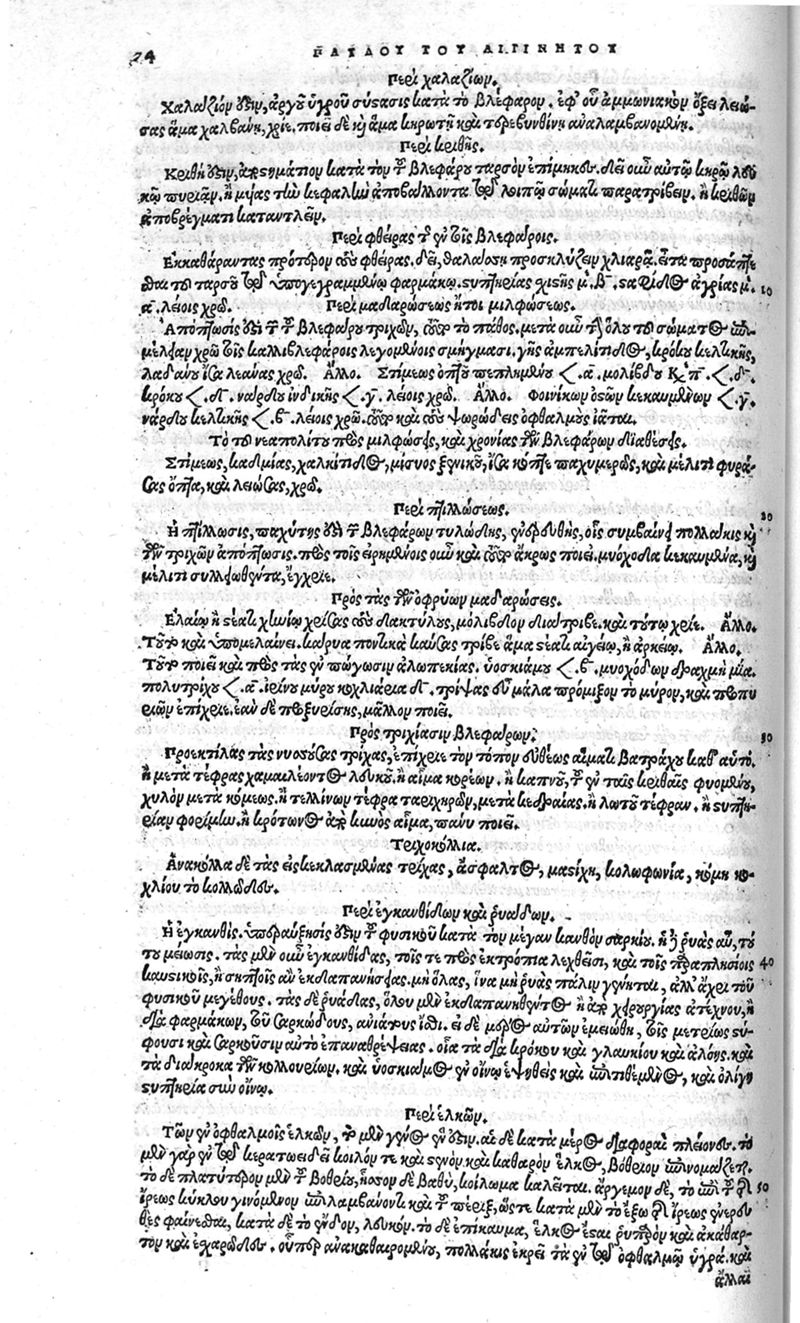 24 ΠΑΥΛΟΥ ΤΟΥ ΑΙΓΙΝΗΤΟΥ
Περὶ χαλαζίων.
Χαλάζιόν ὅστιν, ἀργοῦ ὑγροῦ σύστασις κατὰ τὸ βλέφαρον. ἐφ' οὗ ἀμμωνιακὸν ὄξει λειώ-
σας ἅμα χαλβάνῃ, χρῖε. ποιεῖ δὲ κἢ ἅμα κηρωτῇ καὶ τερεβινθίνῃ ἀναλαμβανομένη.
Περὶ κριθῆς.
Κριθή ὅστιν, ἀποστημάτιον κατὰ τὸν τοῦ βλεφάρου ταρσὸν ἐπίμηκες. δεῖ οὖν αὐτῷ κηρῷ λευ
κῷ πυριᾶν. ἢ μυίας τὴν κεφαλὴν ἀποβαλόντα τῷ λοιπῷ σώματι παρατρίβειν. ἢ κριθῶν
ἀποβρέγματι καταντλεῖν.
Περὶ φθείρας τοὺς ἐν τοῖς βλεφάροις.
Ἐκκαθάραντας πρότερον τοὺς φθείρας. δεῖ, θαλάσσῃ προσκλύζειν χλιαρᾷ. εἶτα προσάπτε
σθαι τοῦ ταρσοῦ τῷ ὑπογεγραμμένῳ φαρμάκῳ. στυπτηρίας χιστῆς μ. β. σταφίδος ἀγρίας μ. 10
α. λείοις χρῶ. Περὶ μαδαρώσεως ἤτοι μιλφώσεως.
Ἀπόπτωσίς ὅστι τῶν τοῦ βλεφάρου τριχῶν, τοῦτο τὸ πάθος. μετὰ οὖν τὴν ὅλου τοῦ σώματος ἐπι
μέλειαν χρῶ τοῖς καλλιβλεφάροις λεγομένοις σμήγμασι. γῆς ἀμπελίτιδος, κρόκου κελτικῆς,
λαδάνου ἴσα λεάνας χρῶ. Ἄλλο. Στίμεως ὀπτοῦ πεπλυμένου < . α. μολίβδου κπ. < . δ.
κρόκου < . δ. νάρδου ἰνδικῆς < . γ. λείοις χρῶ. Ἄλλο. Φοινίκων ὀστῶν κεκαυμένων < . γ.
νάρδου κελτικῆς < . β. λείοις χρῶ. τοῦτο καὶ τοὺς ψωρώδεις ὀφθαλμοὺς ἰᾶται.
Τὸ τοῦ νεαπολίτου πρὸς μιλφώσεις, καὶ χρονίας τῶν βλεφάρων διαθέσεις.
Στίμεως, καδμίας, χαλκίτιδος, μίσυος ξηνικοῦ, ἴσα κόπτε παχυμερῶς, καὶ μέλιτι φυρά-
σας ὄπτα, καὶ λειώσας, χρῶ.
Περὶ πτιλώσεως. 20
Ἡ πτίλωσις, παχύτης ὅστι τῶν βλεφάρων τυλώδης, ἐνερευθής, οἷς συμβαίνει πολλάκις κὴ
τῶν τριχῶν ἀπόπτωσις. πρὸς τοῖς εἰρημένοις οὖν καὶ τοῦτο ἄκρως ποιεῖ. μυόχοδα κεκαυμένα, κὴ
μέλιτι συλλειωθέντα, ἔγχριε.
Πρὸς τὰς τῶν ὀφρύων μαδαρώσεις.
Ἐλαίῳ ἢ στέατι χηνίῳ χρίσας τοὺς δακτύλους, μόλιβδον διάτριβε. καὶ τούτῳ χρῖε. Ἄλλο.
Τοῦτο καὶ ὑπομελαίνει. κάρυα ποντικὰ καύσας τρῖβε ἅμα στέατι αἰγείῳ, ἢ ἀρκείῳ. Ἄλλο.
Τοῦτο ποιεῖ καὶ πρὸς τὰς ἐν πώγωσιν ἀλωπεκίας. ὑοσκυάμου < . β. μυοχόδων δραχμὴ μία.
πολυτρίχου < . α. ἰρίνου μύρου κοχλιάρια δ. τρίψας εὖ μάλα πρόμιξον τὸ μύρον, καὶ προπυ
ριῶν ἐπίχριε. ἐὰν δὲ προξυρίσῃς, μᾶλλον ποιεῖ.
Πρὸς τριχίασιν βλεφάρων. 30
Προεκτίλας τὰς νυσσούσας τρίχας, ἐπίχριε τὸν τόπον εὐθέως αἵματι βατράχου καθ' αὑτό.
ἢ μετὰ τέφρας χαμαιλέοντος λευκοῦ. ἢ αἷμα κορέων. ἢ καπνοῦ, τοῦ ἐν ταῖς κριθαῖς φυομένου,
χυλὸν μετὰ κόμεως. ἢ τελλίνων τέφρα ταριχηρῶν, μετὰ κεδραίας. ἢ λωτοῦ τέφραν. ἢ στυπτη-
ρίαν φορίμην. ἢ κρότωνος ἀπὸ κυνὸς αἷμα, πάνυ ποιεῖ.
Τριχοκόλλια.
Ἀνακόλλα δὲ τὰς εἰσκεκλασμένας τρίχας, ἄσφαλτος, μαστίχη, κολωφωνία, κόμη κο-
χλίου τὸ κολλῶδες.
Περὶ ἐγκανθίδων καὶ ῥυάδων.
Ἡ ἐγκανθίς. ὑπεραύξησίς ὅστιν τοῦ φυσικοῦ κατὰ τὸν μέγαν κανθὸν σαρκίου. ἡ δὲ ῥυὰς αὖ, τού
του μείωσις. τὰς μὲν οὖν ἐγκανθίδας, τοῖς τε πρὸς ἐκτρόπια λεχθεῖσι, καὶ τοῖς παραπλησίοις 40
καυστικοῖς, ἢ σηπτοῖς ἂν ἐκδαπανήσειας. μὴ ὅλας, ἵνα μὴ ῥυὰς πάλιν γένηται, ἀλλ' ἄχρι τοῦ
φυσικοῦ μεγέθους. τὰς δὲ ῥυάδας, ὅλου μὲν ἐκδαπανηθέντος ἢ ἀπὸ χειρουργίας ἀτέχνου, ἢ
διὰ φαρμάκων, τοῦ σαρκώδους, ἀνιάτους ἴσθι. εἰ δὲ μέρος αὐτῶν ἐμειώθη, τοῖς μετρίως στύ-
φουσι καὶ σαρκοῦσιν αὐτὸ ἐπαναθρέψειας. οἷα τὰ διὰ κρόκου καὶ γλαυκίου καὶ ἀλόης. καὶ
τὰ διάκροκα τῶν κολλουρίων. καὶ ὑοσκίαμος ἐν οἴνῳ ἑψηθεὶς καὶ ἐπιτιθέμενος, καὶ ὀλίγη
στυπτηρία σὺν οἴνῳ.
Περὶ ἑλκῶν.
Τῶν ἐν ὀφθαλμοῖς ἑλκῶν, τὸ μὲν γένος ἕν ὅστιν. αἱ δὲ κατὰ μέρος διαφοραὶ πλείονες. τὸ
μὲν γὰρ ἐν τῷ κερατοειδεῖ κοῖλόν τε καὶ στενὸν καὶ καθαρὸν ἕλκος, βόθριον ἐπονομάζεται.
τὸ δὲ πλατύτερον μὲν τοῦ βοθρίου, ἧσσον δὲ βαθύ, κοίλωμα καλεῖται. ἄργεμον δέ, τὸ ἐπὶ τοῦ τῆς 50
ἴρεως κύκλου γινόμενον ἐπιλαμβάνον τι καὶ τοῦ πέριξ, ὥστε κατὰ μὲν τὸ ἔξω τῆς ἴρεως ἐνερευ
θὲς φαίνεσθαι, κατὰ δὲ τὸ ἔνδον, λευκόν. τὸ δὲ ἐπίκαυμα, ἕλκος ἐστὶ ῥυπαρὸν καὶ ἀκάθαρ-
τον καὶ ἐσχαρῶδες. οὗπερ ἀνακαθαιρομένου, πολλάκις ἐκρεῖ τὰ ἐν τῷ ὀφθαλμῷ ὑγρά. καὶ
ἄλλαι